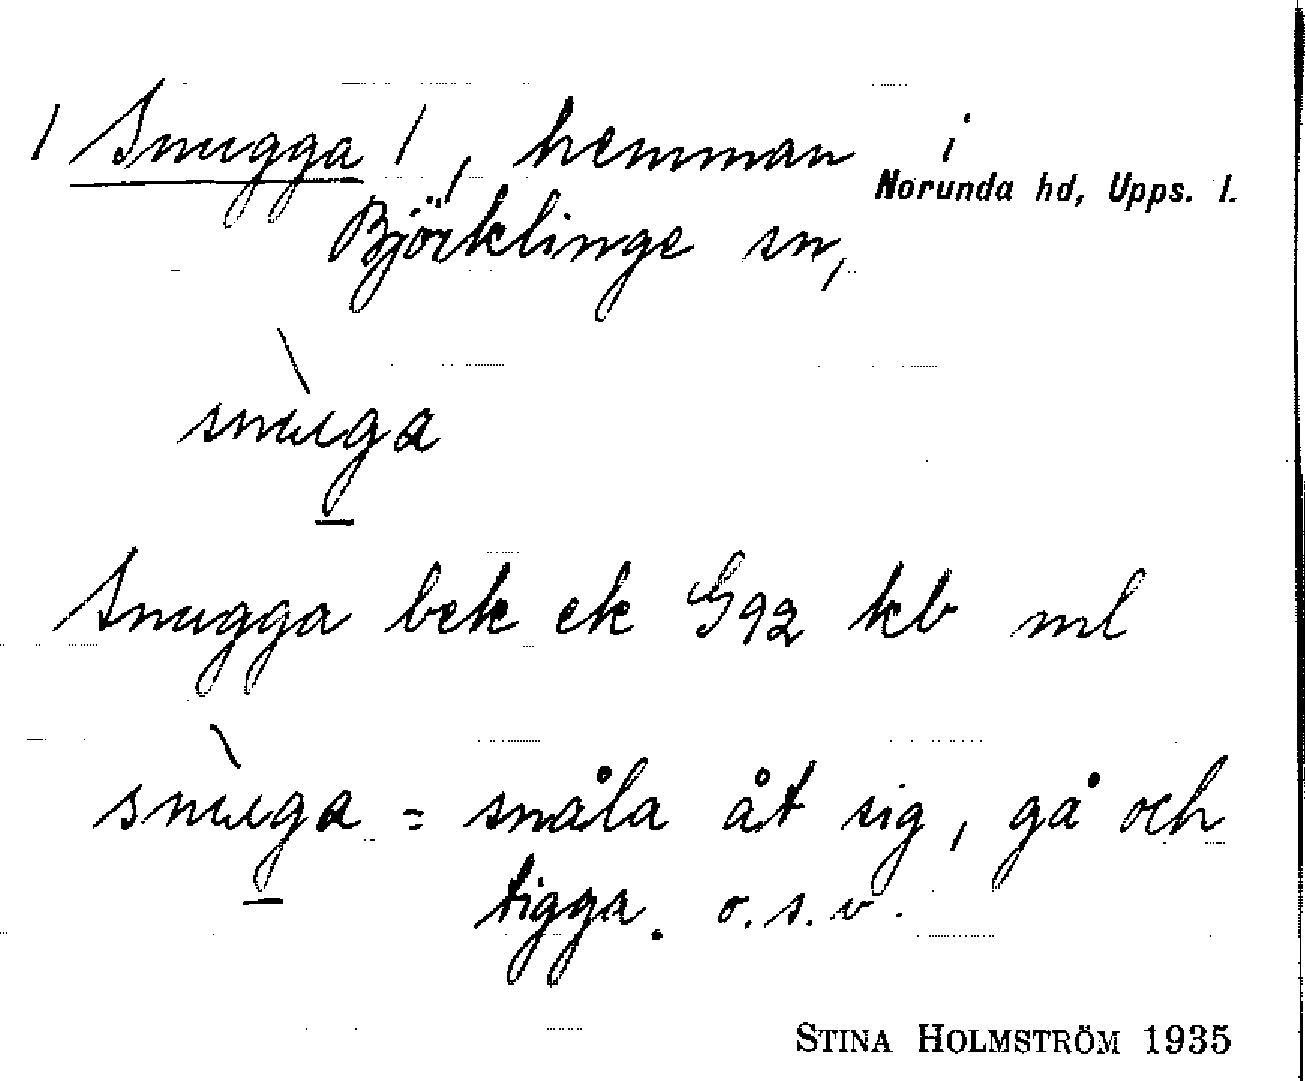 / Snugga /, hemman i
Norunda hd, Upps. l.
Björklinge sn,
snùga
Snugga bek ek G92 kb ml
snùga = snåla åt sig, gå och
tigga. o.s.v.
STINA HOLMSTRÖM 1935